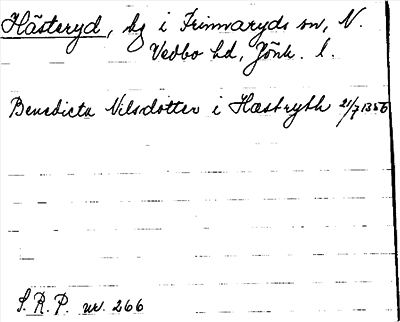 Hästeryd, by i Frinnaryds sn, N.
Vedbo hd, Jönk. l.
Benedicta Nilsdotter i Hæstrydh 21/7 1356
S.R.P. nr. 266